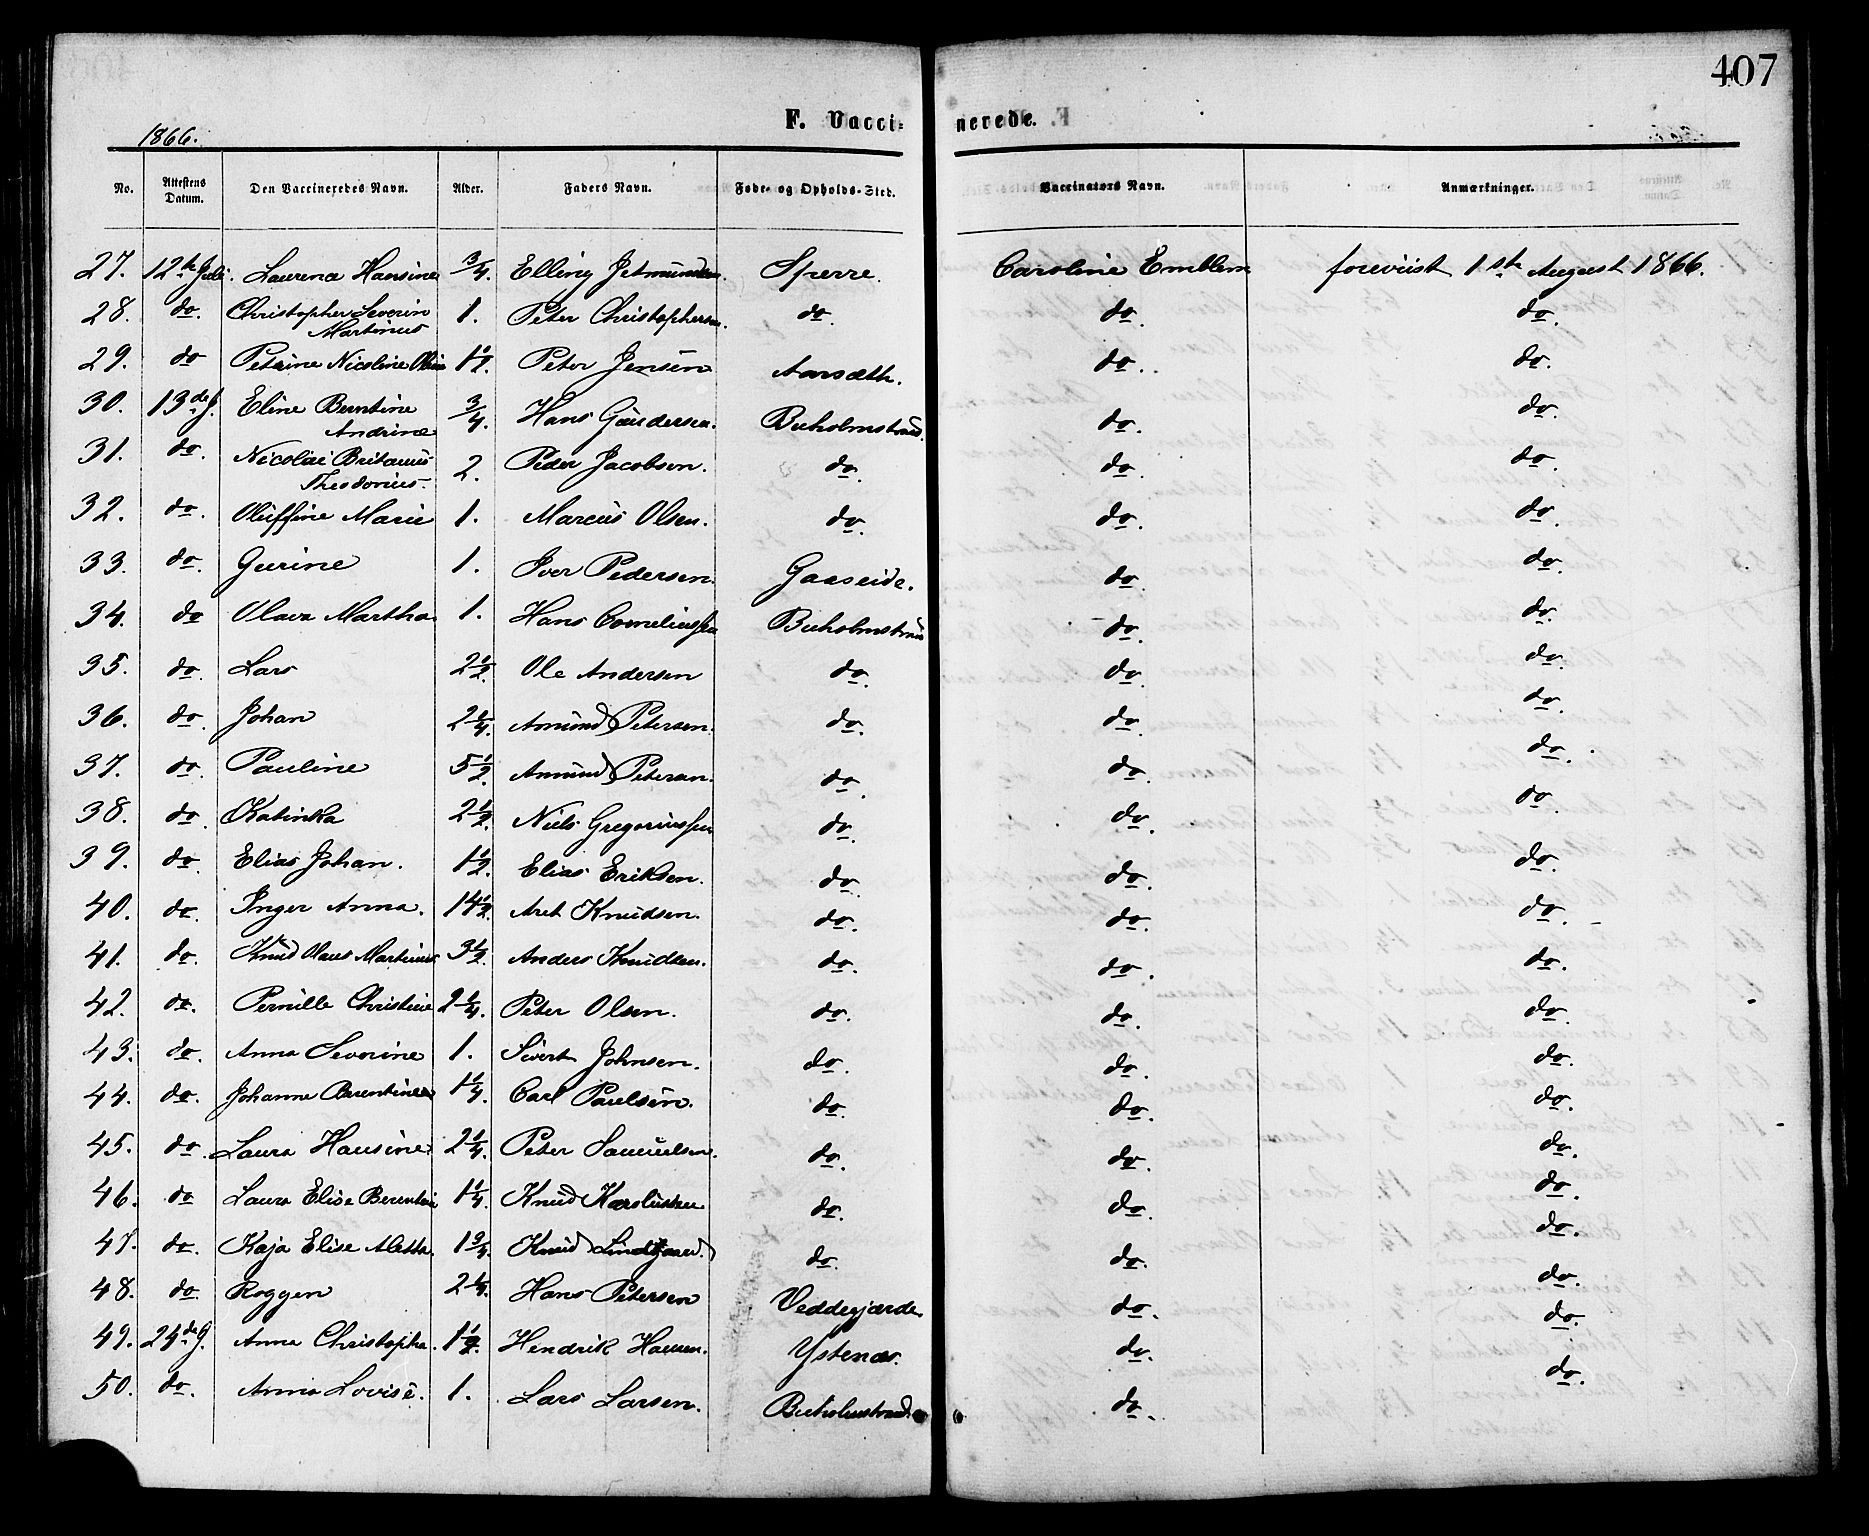 407
F. Vacci- nerede.
1866.
No. Attestens Datum. Den Vaccineredes Navn. Alder. Faders Navn. Føde- og Opholds-Sted. Vaccinators Navn. Anmærkninger.
27. 12te Juli. Laurena Hansine 3/4. Elling Jetmundsen. Sperre. Caroline Emblem foreviist 1ste August 1866.
28. do. Christopher Severin 1. Peter Christophersen. do. do. do.
Martinus
29. do Petrine Nicoline Oline 1 1/2. Peter Jensen Aarsæth. do. do.
30. 13de J. Eline Berntine 3/4. Hans Gundersen. Buholmstrand. do. do.
Andrine
31. do. Nicolai Britanus 2. Peder Jacobsen. do. do. do.
Theodorius.
32. do. Oluffine Marie 1. Marcus Olsen. do. do. do.
33. do. Gurine 1. Iver Pedersen. Gaaseide. do. do.
34. do Olava Martha. 1. Hans Corneliussen Buholmstrand do. do.
35. do. Lars 2 1/2. Ole Andersen do. do. do.
36. do. Johan 2 1/4. Amund Petersen. do. do. do.
37. do. Pauline 5 1/2. Amund Petersen. do. do. do.
38. do. Katinka 2 1/2. Niels Gregoriussen do. do. do.
39. do. Elias Johan. 1 1/2. Elias Eriksen. do. do. do.
40. do. Inger Anna. 14 1/2. Aret Knudsen. do. do. do.
41. do. Knud Olaus Martinus 3 1/2. Anders Knudsen. do. do. do.
42. do. Pernille Christine 2 1/4. Peter Olsen. do. do. do.
43. do. Anna Severine 1. Sivert Johnsen. do. do. do.
44. do. Johanne Berentinea 1 1/4. Carl Paulsen. do. do. do.
45. do. Laura Hansine 2 1/4. Peter Samuelsen. do. do. do.
46. do Laura Elise Berentine 1 1/4. Knud Karolussen do. do. do.
47. do. Kaja Elise Aletta. 1 3/4. Knud Lindgaard do. do. do.
48. do. Roggen 2 1/4. Hans Petersen Veddegjærde do. do.
49. 24de J. Anne Christophe. 1 1/2. Hendrik Hansen. Ystenæs. do. do.
50. do. Anna Lovise. 1. Lars Larsen. Buholmstrand. do. do.